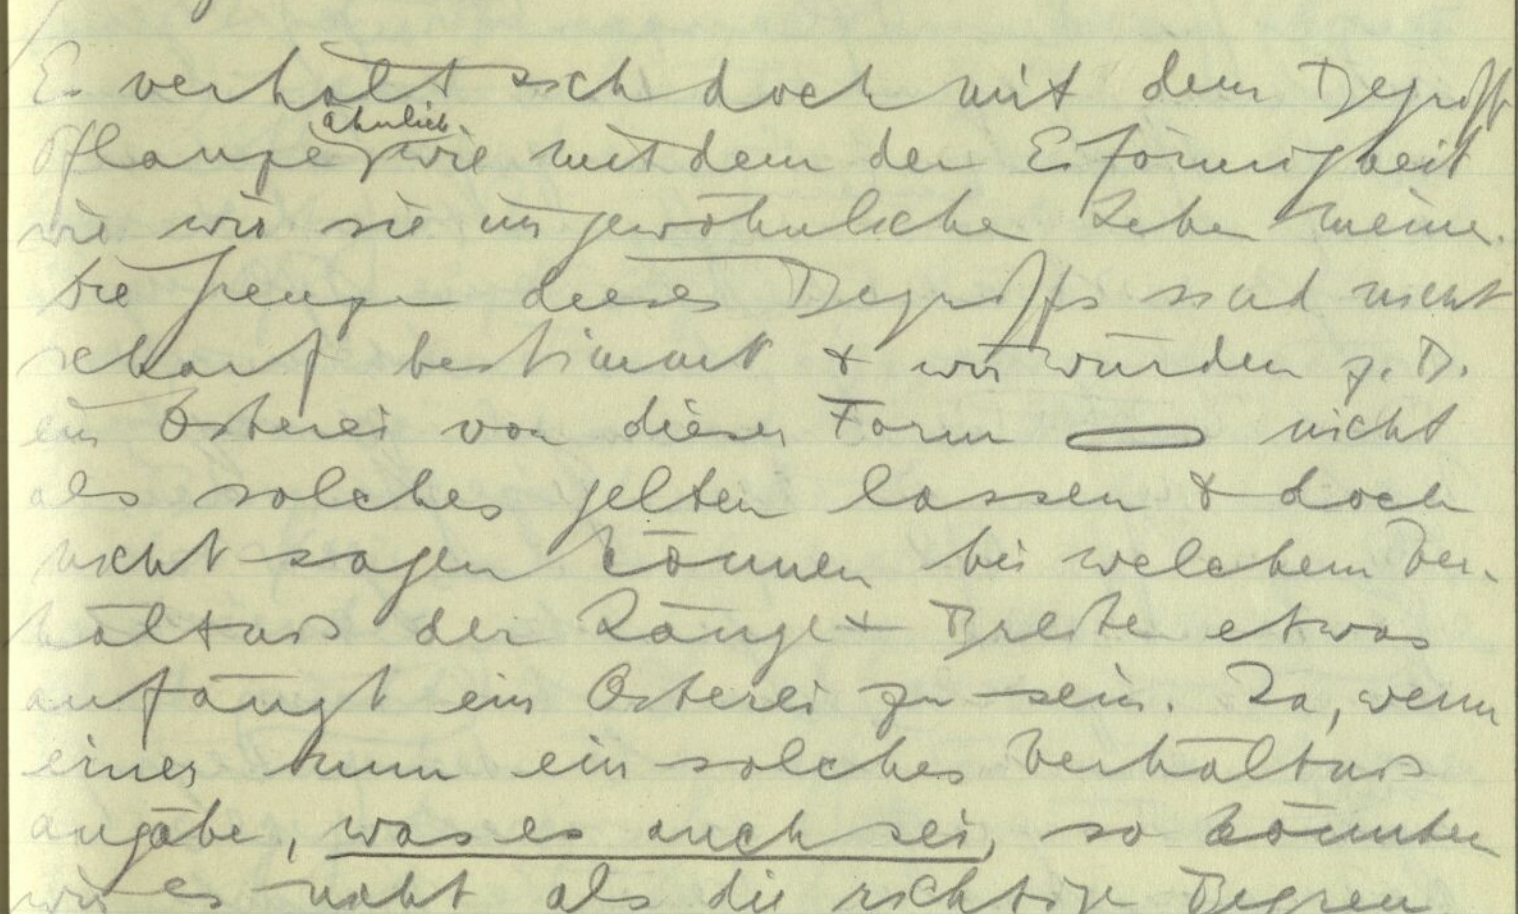 Es verhält sich doch mit dem Begriff
Pflanze ähnlich wie mit dem der Eiförmigkeit
wie wir sie im gewöhnlichen Leben meinen.
Die Grenzen dieses Begriffs sind nicht
scharf bestimmt & wir würden z.B.
ein Osterei von dieser Form nicht
als solches gelten lassen & doch
nicht sagen können bei welchem Ver-
hältnis der Länge & Breite etwas
anfängt ein Osterei zu sein. Ja, wenn
einer nun ein solches Verhältnis
angäbe, was es auch sei, so könnten
wir es nicht als die richtige Begren